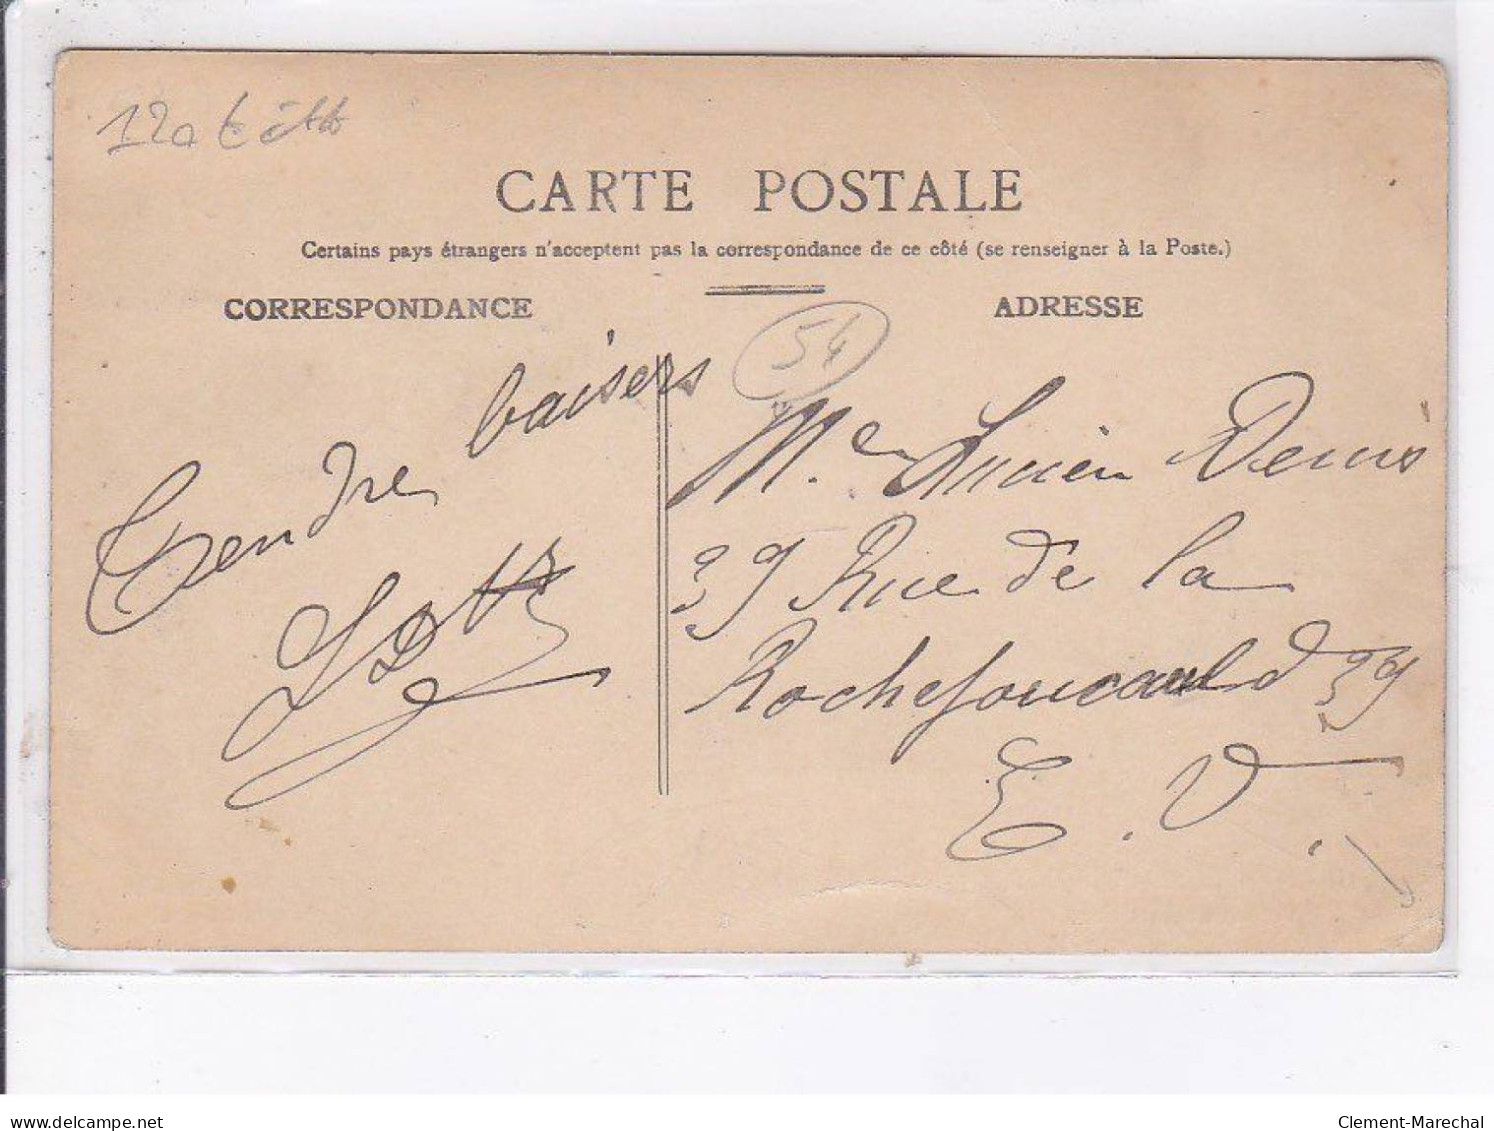 CARTE POSTALE
Certains pays étrangers n'acceptent pas la correspondance de ce côté (se renseigner à la Poste.)
CORRESPONDANCE
ADRESSE
54
Tendre baisers
M. e Lucien Denis
39 Rue de la
Rochefoucauld 39
E. V.
delcampe.net
Clement-Marechal